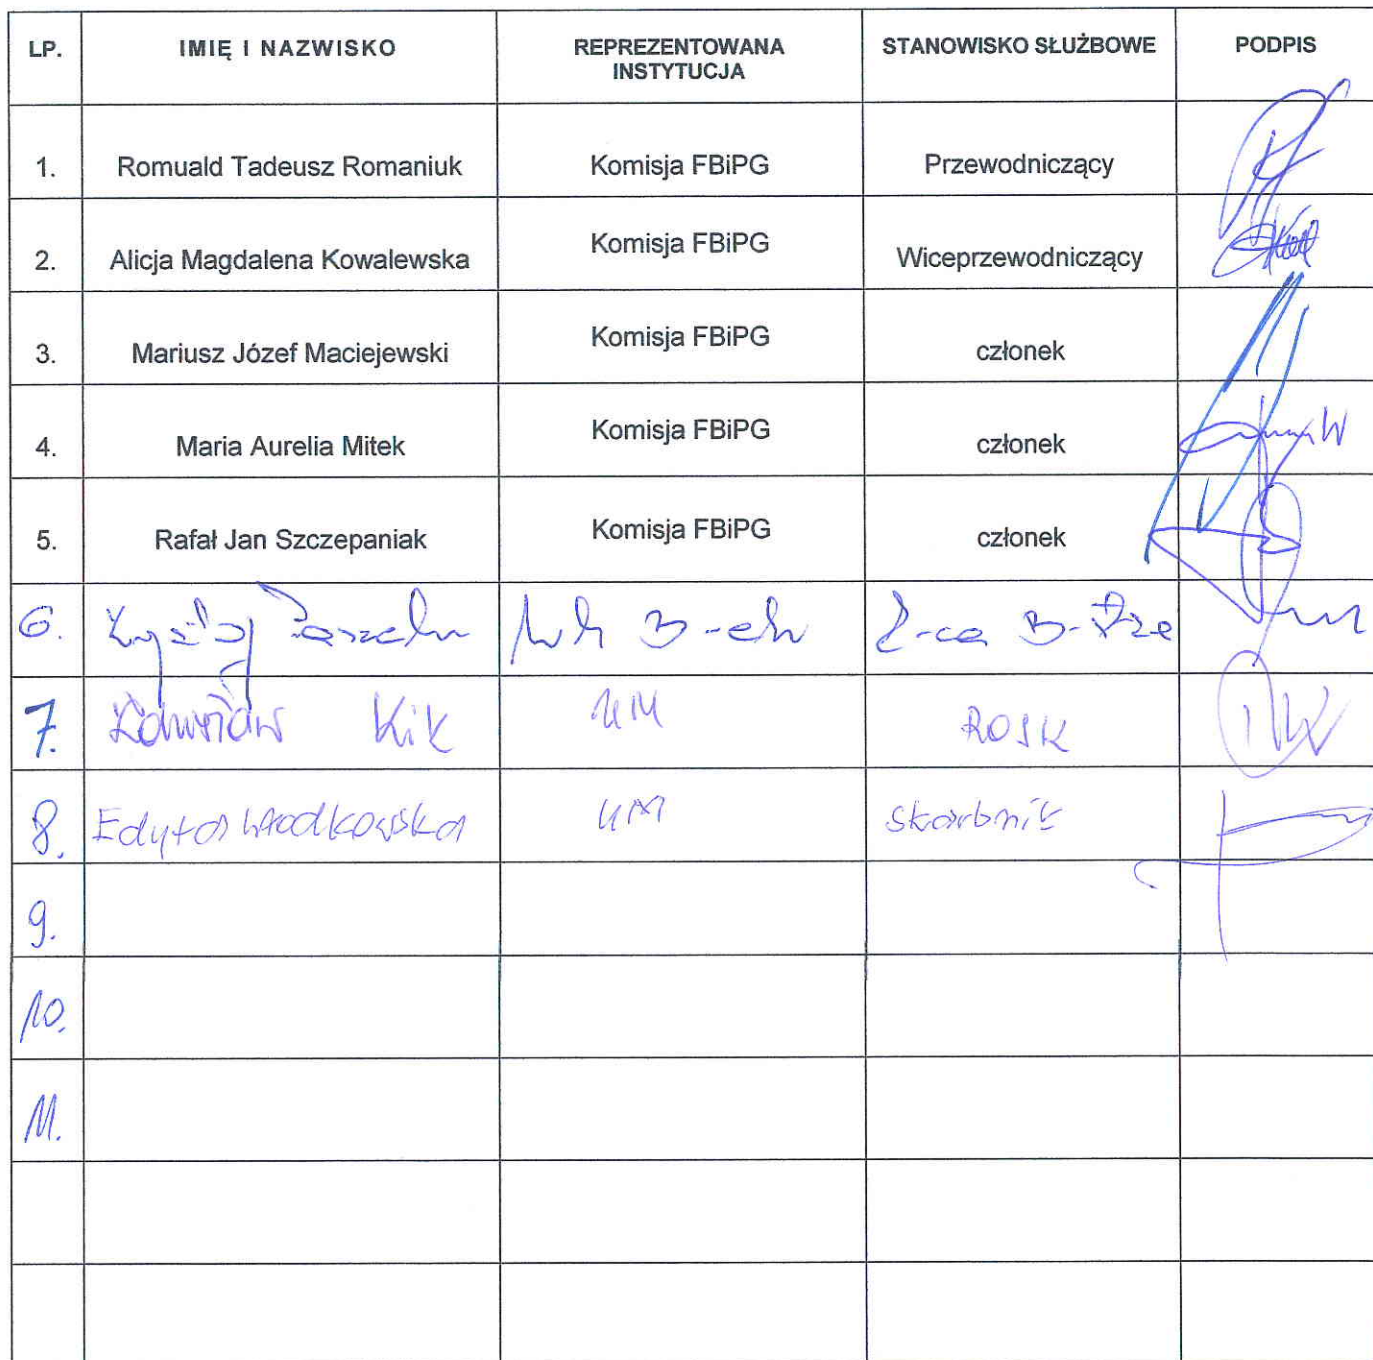 LP. IMIĘ I NAZWISKO REPREZENTOWANA INSTYTUCJA STANOWISKO SŁUŻBOWE PODPIS
1. Romuald Tadeusz Romaniuk Komisja FBiPG Przewodniczący
2. Alicja Magdalena Kowalewska Komisja FBiPG Wiceprzewodniczący
3. Mariusz Józef Maciejewski Komisja FBiPG członek
4. Maria Aurelia Mitek Komisja FBiPG członek
5. Rafał Jan Szczepaniak Komisja FBiPG członek
6. Z-ca
7. Kik UM
8. Edyta UM skarbnik
9.
10.
11.